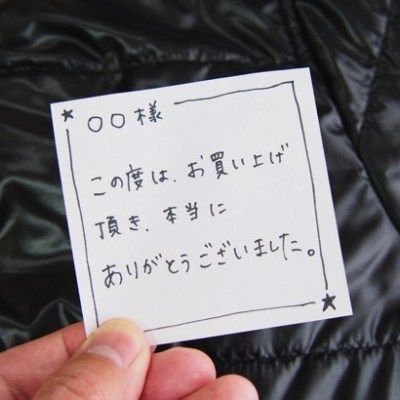 ○○様
この度は、お買い上げ
頂き、本当に
ありがとうございました。